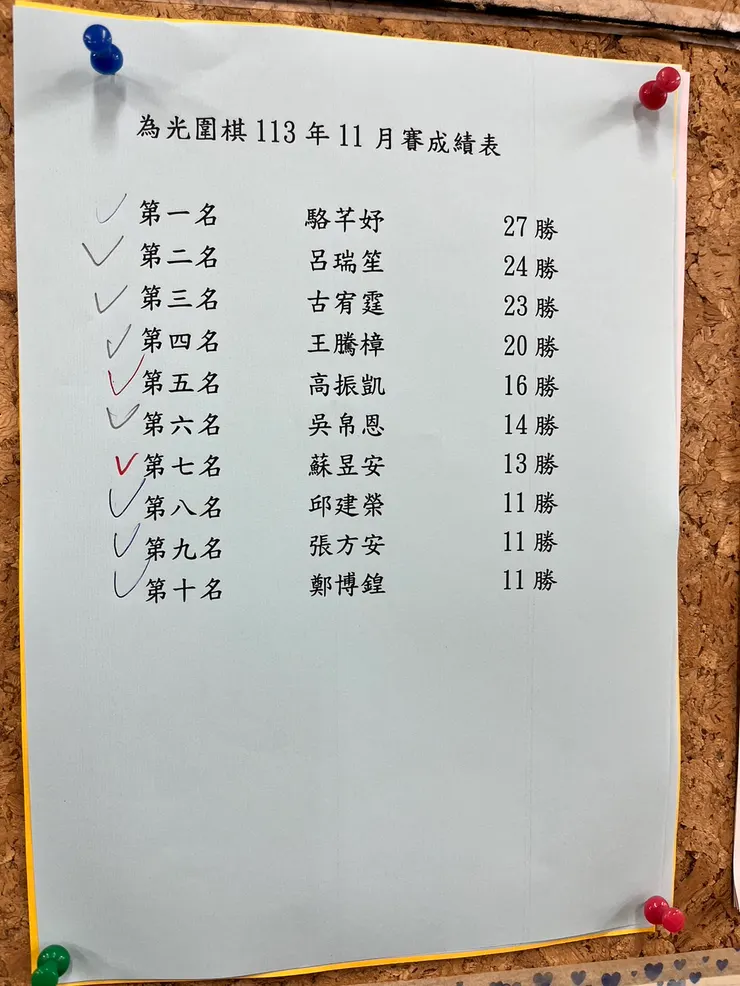 為光圍棋 113 年 11 月賽成績表
第一名 駱芊妤 27 勝
第二名 呂瑞笙 24 勝
第三名 古宥霆 23 勝
第四名 王騰樟 20 勝
第五名 高振凱 16 勝
第六名 吳帛恩 14 勝
第七名 蘇昱安 13 勝
第八名 邱建榮 11 勝
第九名 張方安 11 勝
第十名 鄭博鍠 11 勝